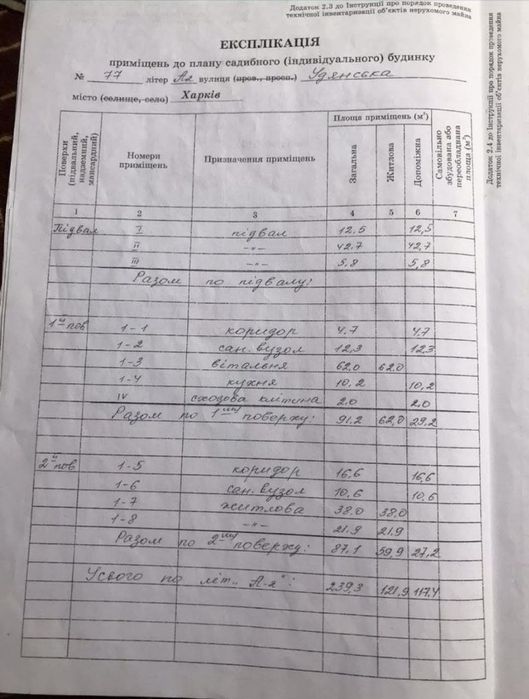 Додаток 2.3 до Інструкції про порядок проведення
технічної інвентаризації об'єктів нерухомого майна
ЕКСПЛІКАЦІЯ
приміщень до плану садибного (індивідуального) будинку
№ 77 літер Ая вулиця (пров., просп.) Удянська
місто (селище, село) Харків
Поверхи (підвальний, надземний, мансардний) Номери приміщень Призначення приміщень Площа приміщень (м²) Загальна Житлова Допоміжна Самовільно збудована або переобладнана площа (м²)
1 2 3 4 5 6 7
Підвал I підвал 12,5 12,5
II -"- 42,7 42,7
III -"- 5,8 5,8
Разом по підвалу:
1й пов 1-1 коридор 4.7 4.7
1-2 сан. вузол 12,3 12,3
1-3 вітальня 62,0 62,0
1-4 кухня 10,2 10,2
IV сходова клітина 2.0 2.0
Разом по 1му поверху: 91,2 62,0 29,2
2й пов 1-5 коридор 16,6 16,6
1-6 сан. вузол 10,6 10,6
1-7 житлова 38.0 38,0
1-8 -"- 21.9 21.9
Разом по 2му поверху: 87,1 59,9 27,2
Усього по літ. "А-я": 239,3 121,9 117,4
Додаток 2.4 до Інструкції про порядок проведення
технічної інвентаризації об'єктів нерухомого майна